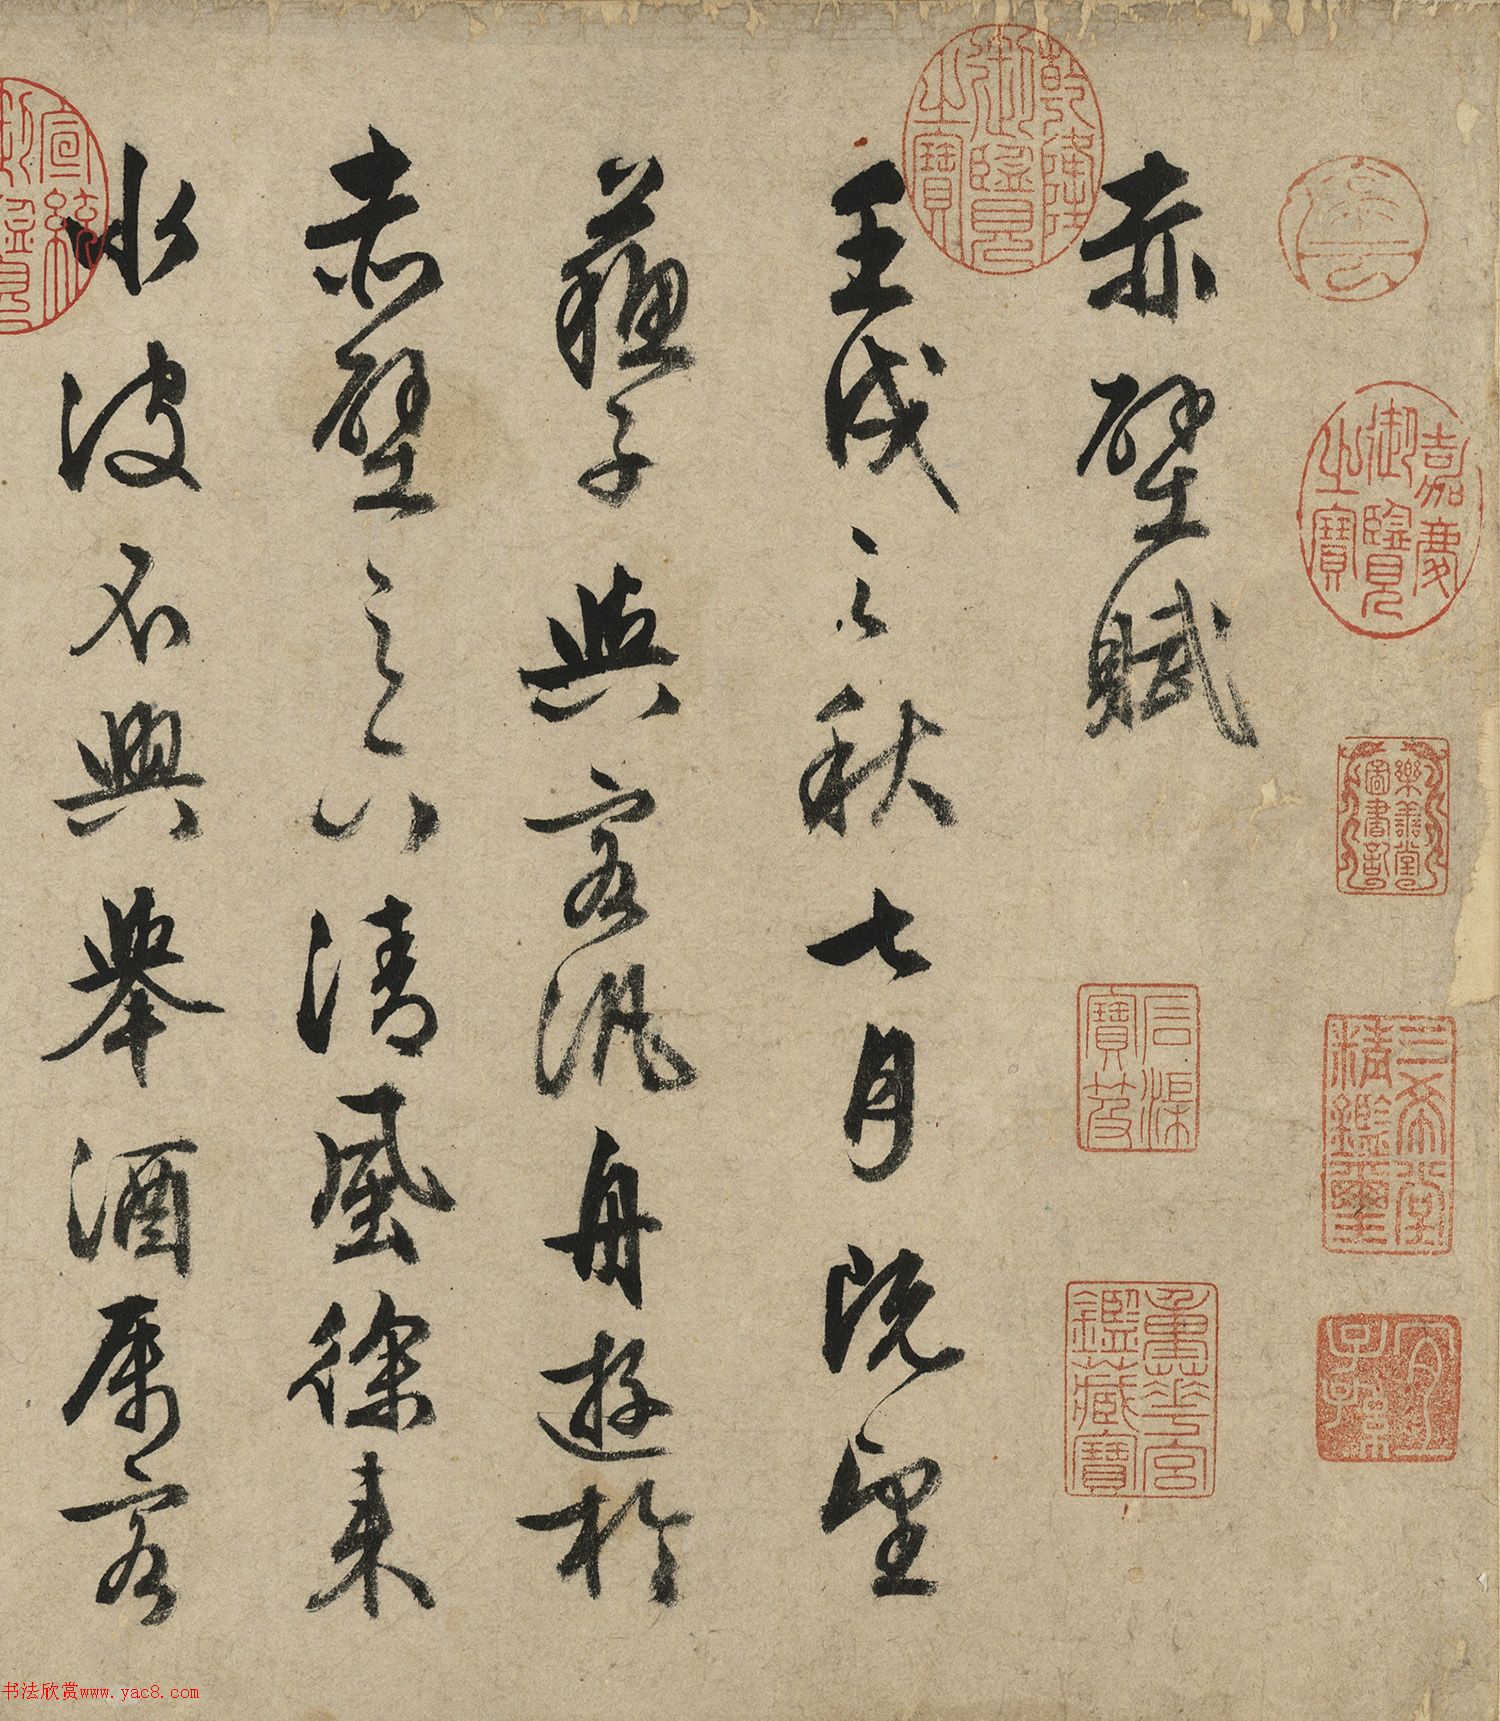 赤壁賦
壬戌之秋七月既望
蘇子與客汎舟遊於
赤壁之下清風徐來
水波不興舉酒屬客
乾隆御覽之寶
嘉慶御覽之寶
樂善堂圖書記
石渠寶笈
三希堂精鑑璽
宜子孫
重華宮鑑藏寶
宣統御覽
书法欣赏www.yac8.com